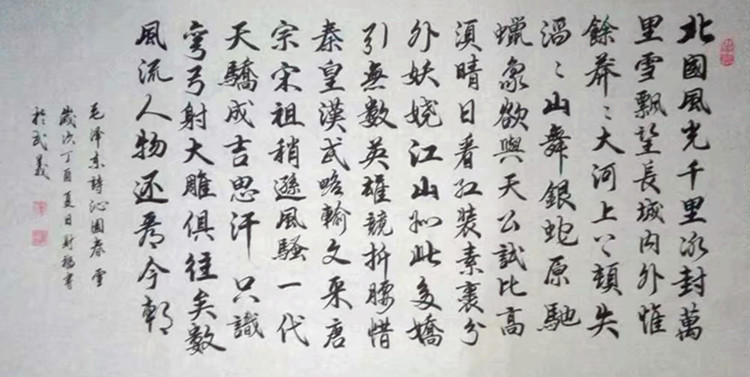 北國風光千里冰封萬
里雪飄望長城内外惟
餘莽〻大河上下頓失
滔〻山舞銀蛇原馳
蠟象欲與天公試比高
須晴日看紅裝素裹分
外妖嬈江山如此多嬌
引無數英雄競折腰惜
秦皇漢武略輸文采唐
宗宋祖稍遜風騷一代
天驕成吉思汗只識
彎弓射大雕俱往矣數
風流人物还看今朝
毛澤東詩沁園春雪
歲次丁酉夏日財福書
於武義